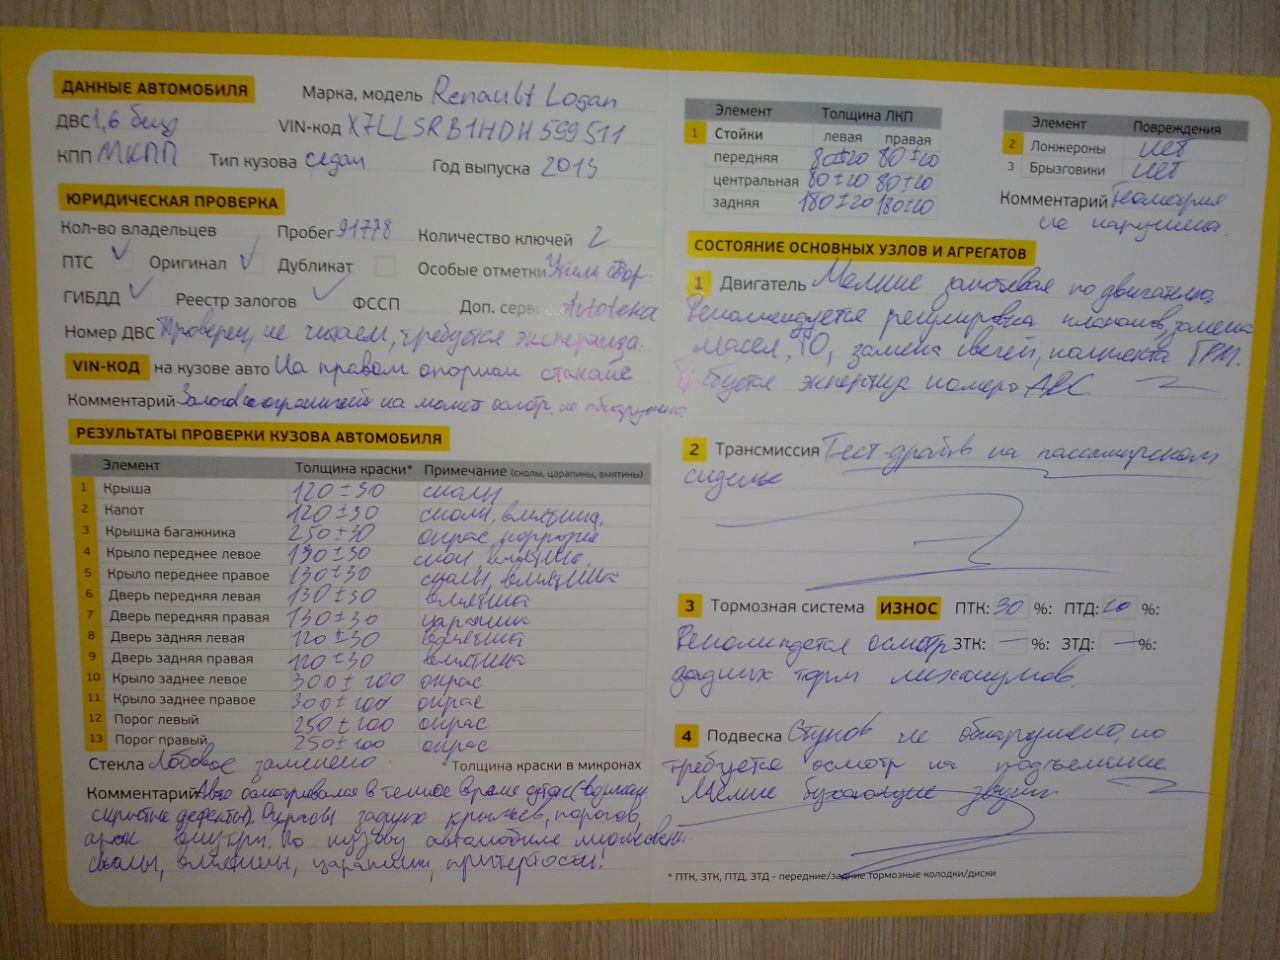 ДАННЫЕ АВТОМОБИЛЯ
Марка, модель Renault Logan
ДВС 1,6 бенз
VIN-код X7LLSRB1HDH599511
КПП МКПП Тип кузова седан Год выпуска 2013
ЮРИДИЧЕСКАЯ ПРОВЕРКА
Кол-во владельцев Пробег 91778 Количество ключей 2
ПТС Оригинал Дубликат Особые отметки Утиль сбор.
ГИБДД Реестр залогов ФССП Доп. серв Avtoteka
Номер ДВС Проверен, не читаем, требуется экспертиза.
VIN-КОД на кузове авто На правом опорном стакане
Комментарий Залогов ограничений на момент осмотр. не обнаружено
РЕЗУЛЬТАТЫ ПРОВЕРКИ КУЗОВА АВТОМОБИЛЯ
Элемент Толщина краски* Примечание (сколы, царапины, вмятины)
1 Крыша 120±30 сколы
2 Капот 120±30 сколы, вмятина,
3 Крышка багажника 250±30 окрас, коррозия
4 Крыло переднее левое 130±30 скол вмятина.
5 Крыло переднее правое 130±30 сколы, вмятина
6 Дверь передняя левая 130±30 вмятина
7 Дверь передняя правая 130±30 царапины
8 Дверь задняя левая 120±30 вмятина
9 Дверь задняя правая 120±30 вмятина
10 Крыло заднее левое 300±200 окрас
11 Крыло заднее правое 300±200 окрас
12 Порог левый 250±100 окрас
13 Порог правый 250±100 окрас
Стекла Лобовое заменено. * Толщина краски в микронах
Комментарий Авто осматривался в темное время суток (возможн
скрытые дефекты). Окрасы задних крыльев, порогов,
арок внутри. По кузову автомобиля множествен
сколы, вмятины, царапины, притертости!
Элемент Толщина ЛКП
1 Стойки левая правая
передняя 80±20 80±20
центральная 80±20 80±20
задняя 180±20 180±20
Элемент Повреждения
2 Лонжероны нет
3 Брызговики нет
Комментарий Геометрия
не нарушена.
СОСТОЯНИЕ ОСНОВНЫХ УЗЛОВ И АГРЕГАТОВ
1 Двигатель Мелкие запотевая по двигателю,
Рекомендуется регулировка клапанов, замена
масел, ТО, замена свечей, комплекта ГРМ.
Требуется экспертиза номера ДВС
2 Трансмиссия Тест-драйв на пассажирском
сиденье
3 Тормозная система ИЗНОС ПТК: 30 %: ПТД: 20 %:
Рекомендется осмотр ЗТК: — %: ЗТД: — %:
задних торм механизмов.
4 Подвеска Стуков не обнаружено, но
требуется осмотр на подъемнике
Мелкие бухающие звуки
* ПТК, ЗТК, ПТД, ЗТД - передние/задние тормозные колодки/диски